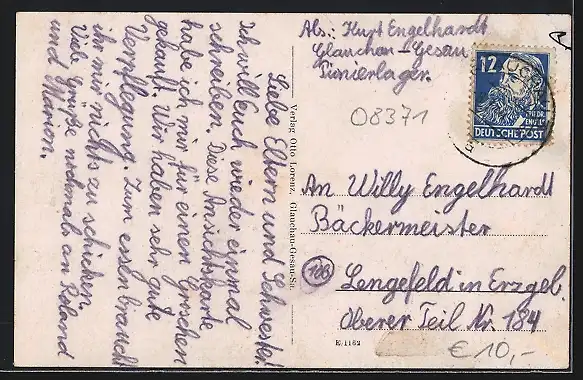 Abs.: Kurt Engelhardt
Glauchau-Gesau
Pionierlager.
08371
12
FRIEDR.
ENGELS
DEUTSCHE POST
An Willy Engelhardt
Bäckermeister
10b
Lengefeld in Erzgeb.
Oberer Teil Nr. 184
€ 10,-
Verlag Otto Lorenz, Glauchau-Gesau-Sa.
E. 1162
Liebe Eltern und Schwester!
Ich will Euch wieder einmal
schreiben. Diese Ansichtskarte
habe ich mir für einen Groschen
gekauft. Wir haben sehr gute
Verpflegung. Zum essen braucht
ihr mir nichts zu schicken.
Viele Grüße nochmals an Roland
und Marion.